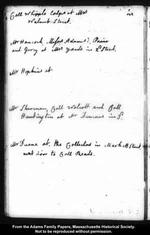 Coll Whipple lodges at Mrs
Walnut Street.
in
Mr Hancock, Messrs Adams's, Paine
and Gerry at Mrs Yards in Street.
Mr Hopkins at
Mr Sherman, Coll Wolcott and Coll
Huntington at Mr Duncans in St.
Mr Deane at the Collectors in Market Street
next door to Coll Reads.
From the Adams Family Papers, Massachusetts Historical Society.
Not to be reproduced without permission.